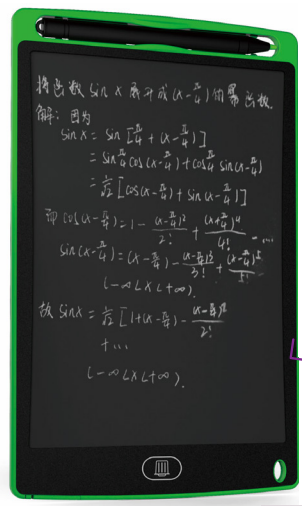 将函数 sin x 展开成 (x-π/4) 的幂函数.
解: 因为
sin x = sin [π/4 + (x-π/4)]
= sin π/4 cos(x-π/4) + cos π/4 sin(x-π/4)
= 1/√2 [cos(x-π/4) + sin(x-π/4)]
即 cos(x-π/4) = 1 - (x-π/4)²/2! + (x+π/4)⁴/4! - ...
sin(x-π/4) = (x-π/4) - (x-π/4)³/3! + (x-π/4)⁵/5!
(-∞<x<+∞).
故 sin x = 1/√2 [1+(x-π/4) - (x-π/4)²/2!
+...
(-∞<x<+∞).